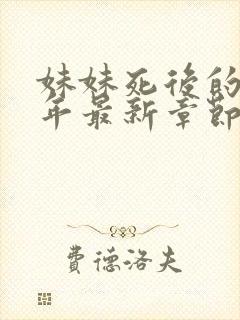 妹妹死後的
年最新章節
費德洛夫